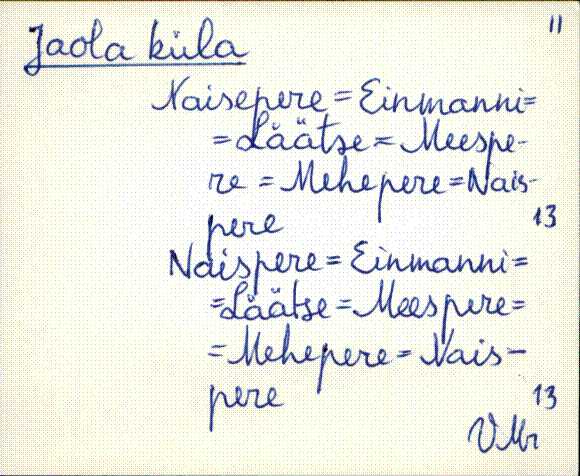 11
Jaola küla
Naisepere = Einmanni=
= Läätse = Meespe-
re = Mehepere = Nais-
pere 13
Naispere = Einmanni =
= Läätse = Meespere =
= Mehepere = Nais-
pere 13
VMr